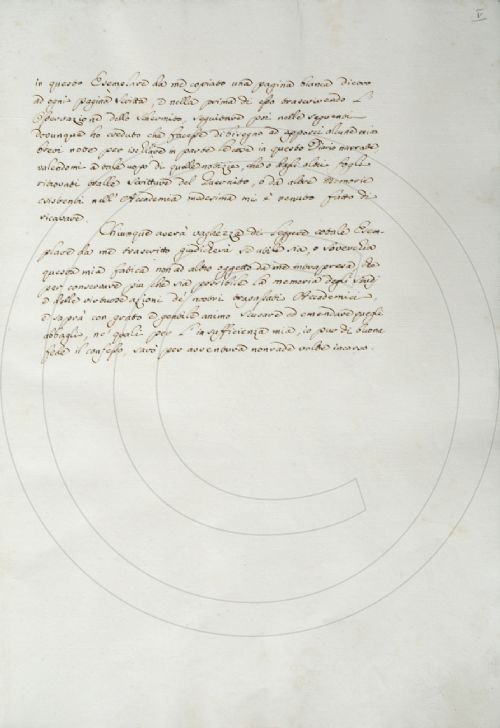 V
in questo Esemplare da me copiato una pagina bianca dietro
ad ogni pagina scritta, e nella prima di esse trascrivendo l'
Osservazione dello Smarrito, seguitare poi nelle seguenti
dovunque ho creduto che facesse di bisogno ad apporci alcune mie
brevi note per ischiarire in parte le cose in questo Diario narrate
valendomi a tale uopo di quelle notizie, che o dagli altri fogli
ritrovati e dalle Scritture del Guernito, o da altre Memorie
esistenti nell'Accademia medesima mi è venuto fatto di
ricavare.
Chiunque averà vaghezza di leggere cotale Esem-
plare da me trascritto giudicherà se utile sia, o soverchia
questa mia fatica non ad altro oggetto da me intrapresa, che
per conservare più che sia possibile la memoria degli studj
e delle virtuose azioni de' nostri trapassati Accademici,
e saprà con grato e gentile animo scusare ed emendare quegli
abbagli, ne' quali per l'insufficienza mia, io pur di buona
fede il confesso, sarò per avventura non rade volte incorso.